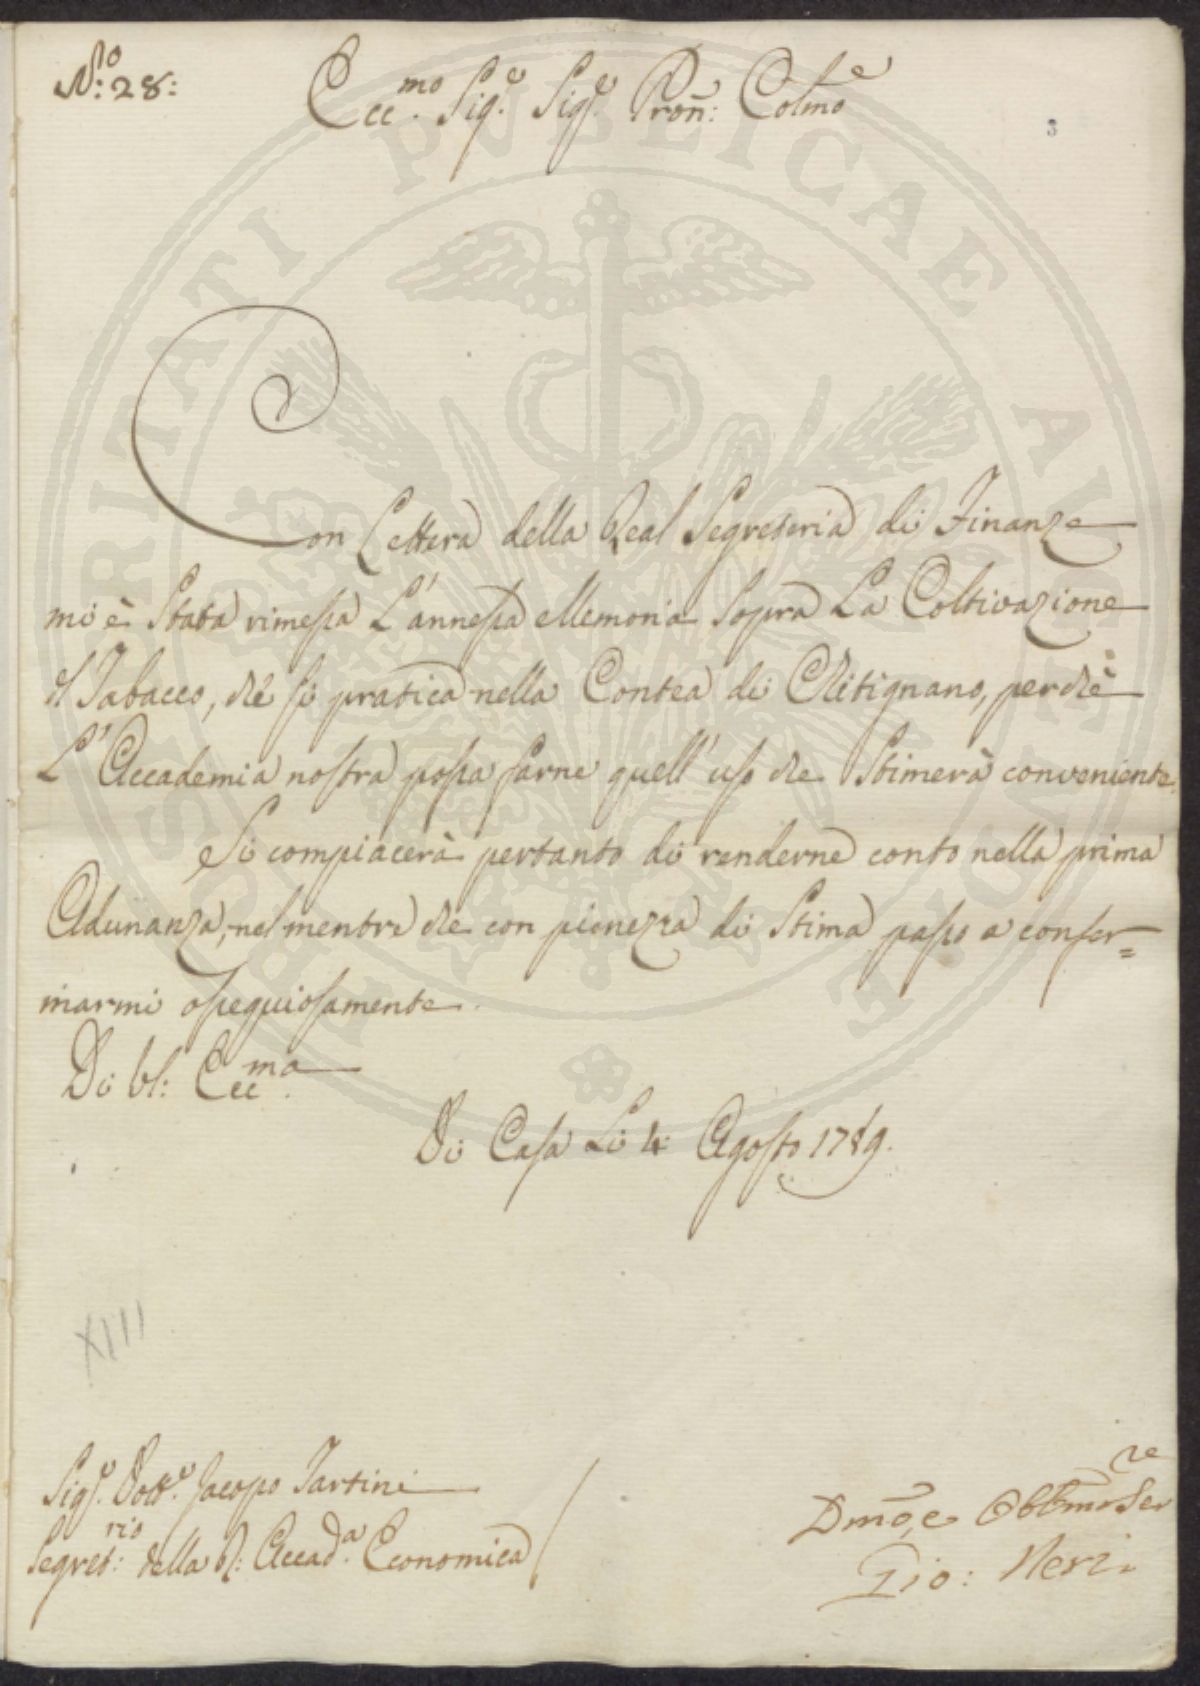 N.o 28:
Ecc.mo Sig.e Sig.e Pron: Colmo
3
Con Lettera della Real Segreteria di Finanze
mi è Stata rimessa L'annessa Memoria Sopra La Coltivazione
del Tabacco, che si pratica nella Contea di Chitignano, perchè
L'Accademia nostra possa farne quell'uso che Stimerà conveniente.
Si compiacerà pertanto di renderne conto nella prima
Adunanza, nel mentre che con pienezza di Stima passo a confer=
marmi ossequiosamente.
Di VS: Ecc.ma
Di Casa Li 4 Agosto 1789.
XIII
Sig.e Dott.e Jacopo Tartini
Segret:rio della R: Accad.a Economica
Dmo, e Obbmo Sere
Gio: Neri
PROSPERITATI PUBLICAE AUGENDAE